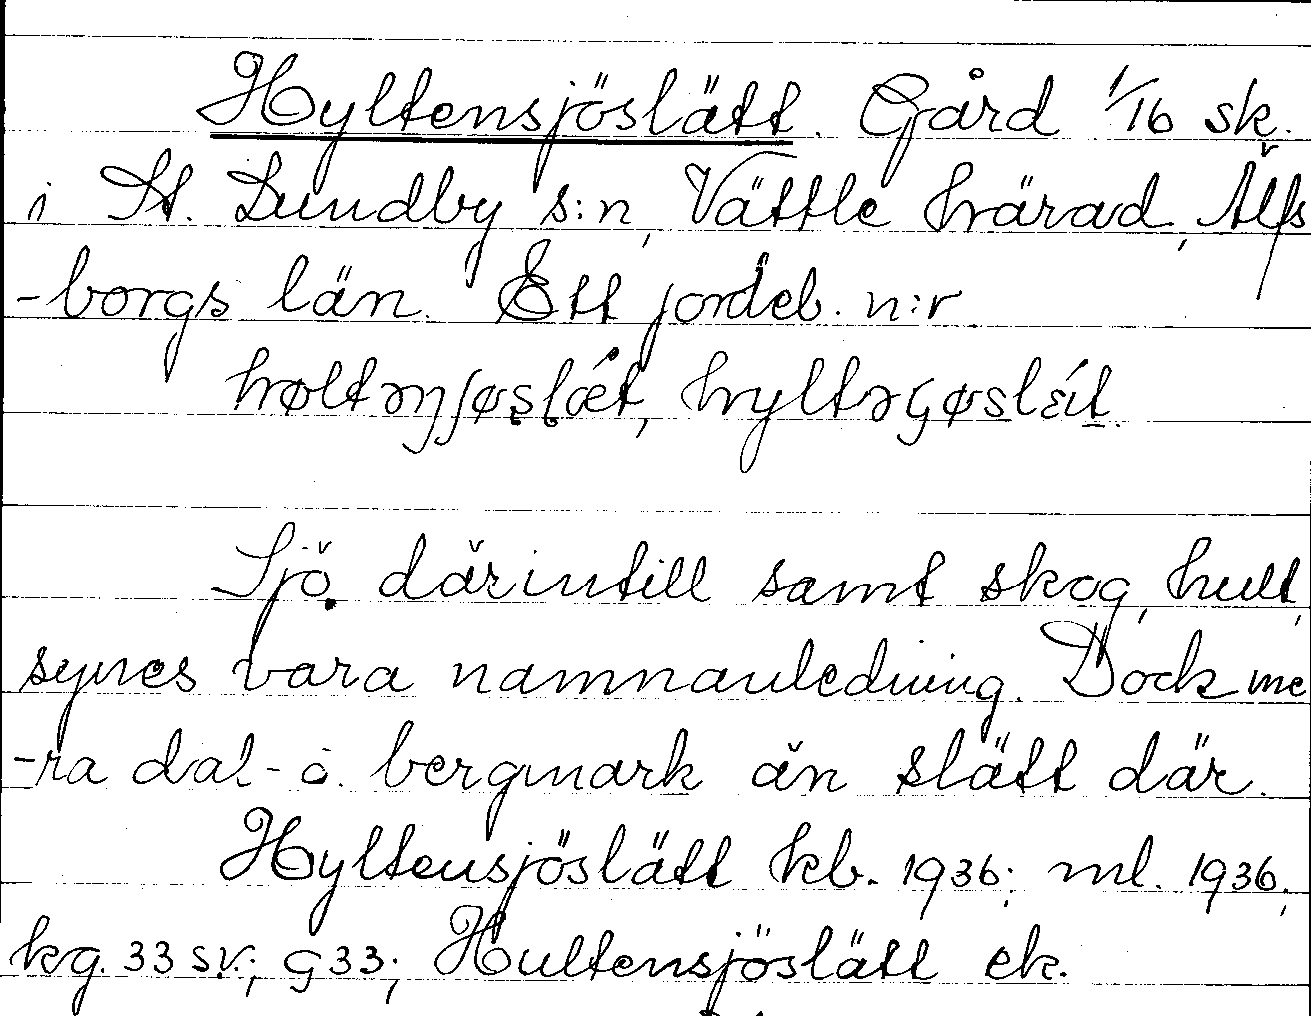 Hyltensjöslätt. Gård 1/16 sk.
i St. Lundby s:n, Vättle härad, Älfs
-borgs län. Ett jordeb. n:r.
Sjö därintill samt skog, hult,
synes vara namnanledning. Dock me
-ra dal- o. bergmark än slätt där.
Hyltensjöslätt kb. 1936; ml. 1936;
kg. 33 sv.; g 33; Hultensjöslätt ek.